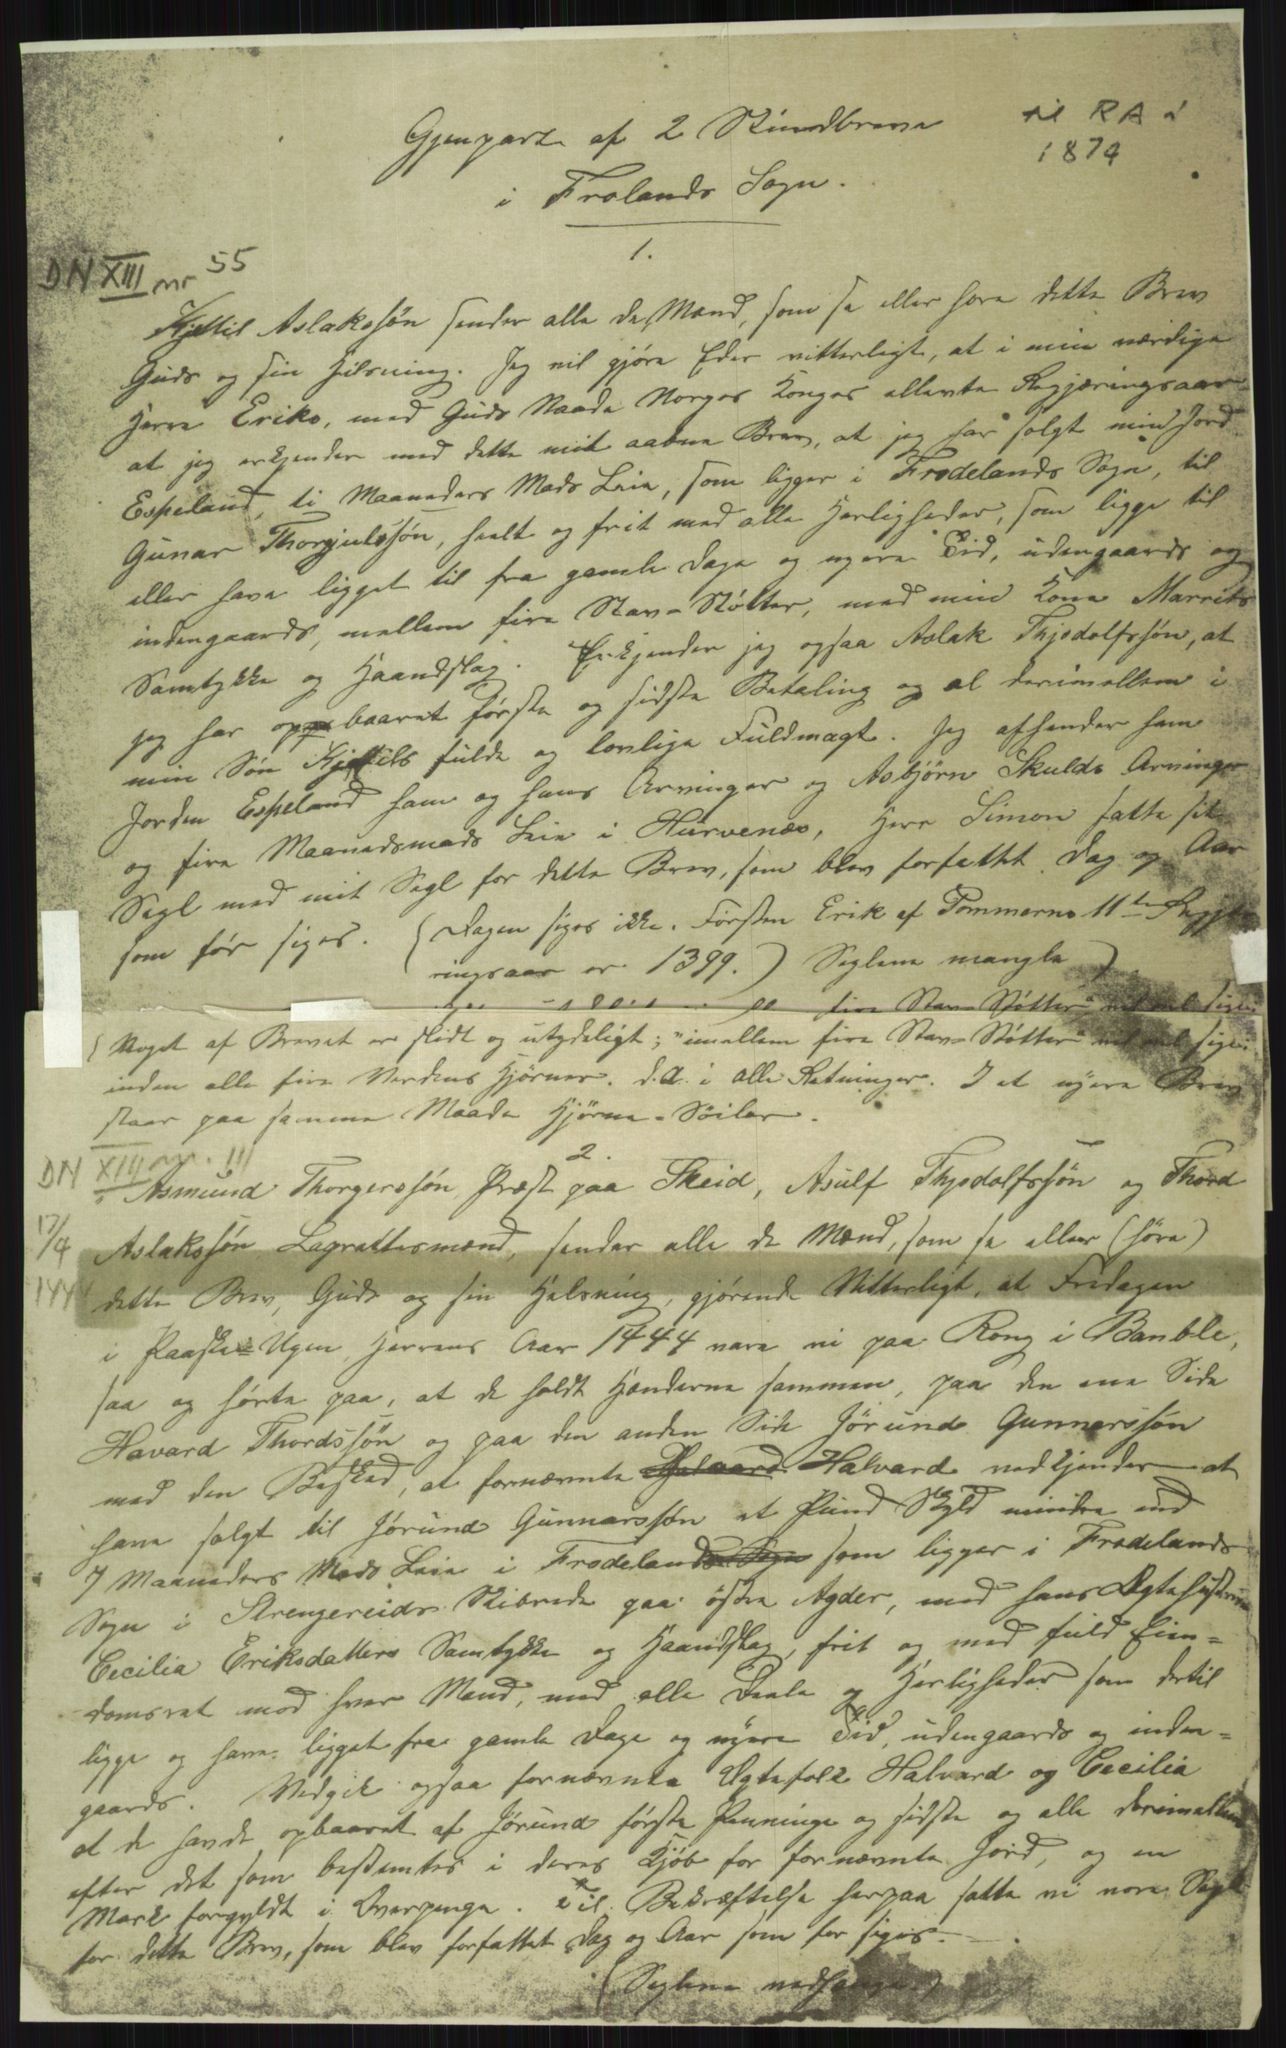 Gjenpart af 2 Skindbreve
til RA i
1874
i Frolands Sogn.
1.
DN XIII nr 55
Kjettil Aslakssøn sender alle de Mænd, som se eller høre dette Brev
Guds og sin Hilsning. Jeg vil gjøre Eder vitterligt, at i min værdige
Herre Eriks, med Guds Naade Norges Konges ellevte Regjæringsaar
at jeg erkjender med dette mit aabne Brev, at jeg har solgt min Jord
Espeland, ti Maaneders Mads Leie, som ligger i Frodelands Sogn, til
Gunar Thorgiulssøn, heelt og frit med alle Herligheder, som ligge til
eller have ligget til fra gamle Dage og nyere Tid, udengaards og
indengaards, mellem fire Stav-Støtter, med min Kone Marrits
Samtykke og Haandslag. Erkjender jeg ogsaa Aslak Thjodolfssøn, at
jeg har oppebaaret første og sidste Betaling og al derimellem i
min Søn Kjettils fulde og lovlige Fuldmagt. Jeg afhender ham
Jorden Espeland ham og hans Arvinger og Asbjørn Skulds Arvinger
og fire Maanedsmads Leie i Hurvenes, Herr Simon satte sit
Segl med mit Segl for dette Brev, som blev forfattet Dag og Aar
som før siges. (Dagen siges ikke. Førsten Erik af Pommerns 11te Regjæ
ringsaar er 1399.) Seglene mangle)
fire Stav-Støtter" vil vel sige:
(Noget af Brevet er slidt og utydeligt; "imellem fire Stav-Støtter" vil vel sige:
inden alle fire Verdens Hjørner. d.e. i alle Retninger. I et nyere Brev
staar paa samme Maade Hjørne-Søiler.
DN XIII nr. 111
2.
Asmund Thorgerssøn Præst paa Skeid, Asulf Thjodolfssøn og Thord
17/4
1444
Aslakssøn Lagrettesmænd, sender alle de Mænd, som se eller (høre)
dette Brev, Guds og sin Helsning, gjørende Vitterligt, at Fredagen
i Paaske-Ugen, Herrens Aar 1444 vare vi paa Rong i Bamble,
saa og hørte paa, at de holdt Hænderne sammen, paa den ene Side
Havard Thordssøn og paa den anden Side Jørund Gunnarssøn
med den Besked, at fornævnte Halvard vedkjender at
have solgt til Jørund Gunnarssøn et Pund Skyld mindre end
7 Maaneders Mads Leie i Frodelands Sogn som ligger i Frodelands
Sogn i Strengereids Skibrede paa østre Agder, med hans Ægtehustrue
Cecilia Eriksdatters Samtykke og Haandslag, frit og med fuld Eien=
domsret mod hver Mand, med alle Deele og Herligheder som dertil
ligge og have ligget fra gamle Dage og nyere Tid, udengaards og inden=
gaards. Vedgik ogsaa fornævnte Ægtefolk Halvard og Cecilia
at de havde opbaaret af Jørund første Penninge og sidste og alle derimellem
efter det som bestemtes i deres Kjøb for fornævnte Jord, og en
Mark forgyldt i Overpenge. Til Bekræftelse herpaa satte vi vore Segl
for dette Brev, som blev forfattet Dag og Aar som før siges.
(Seglene vedhænge.)